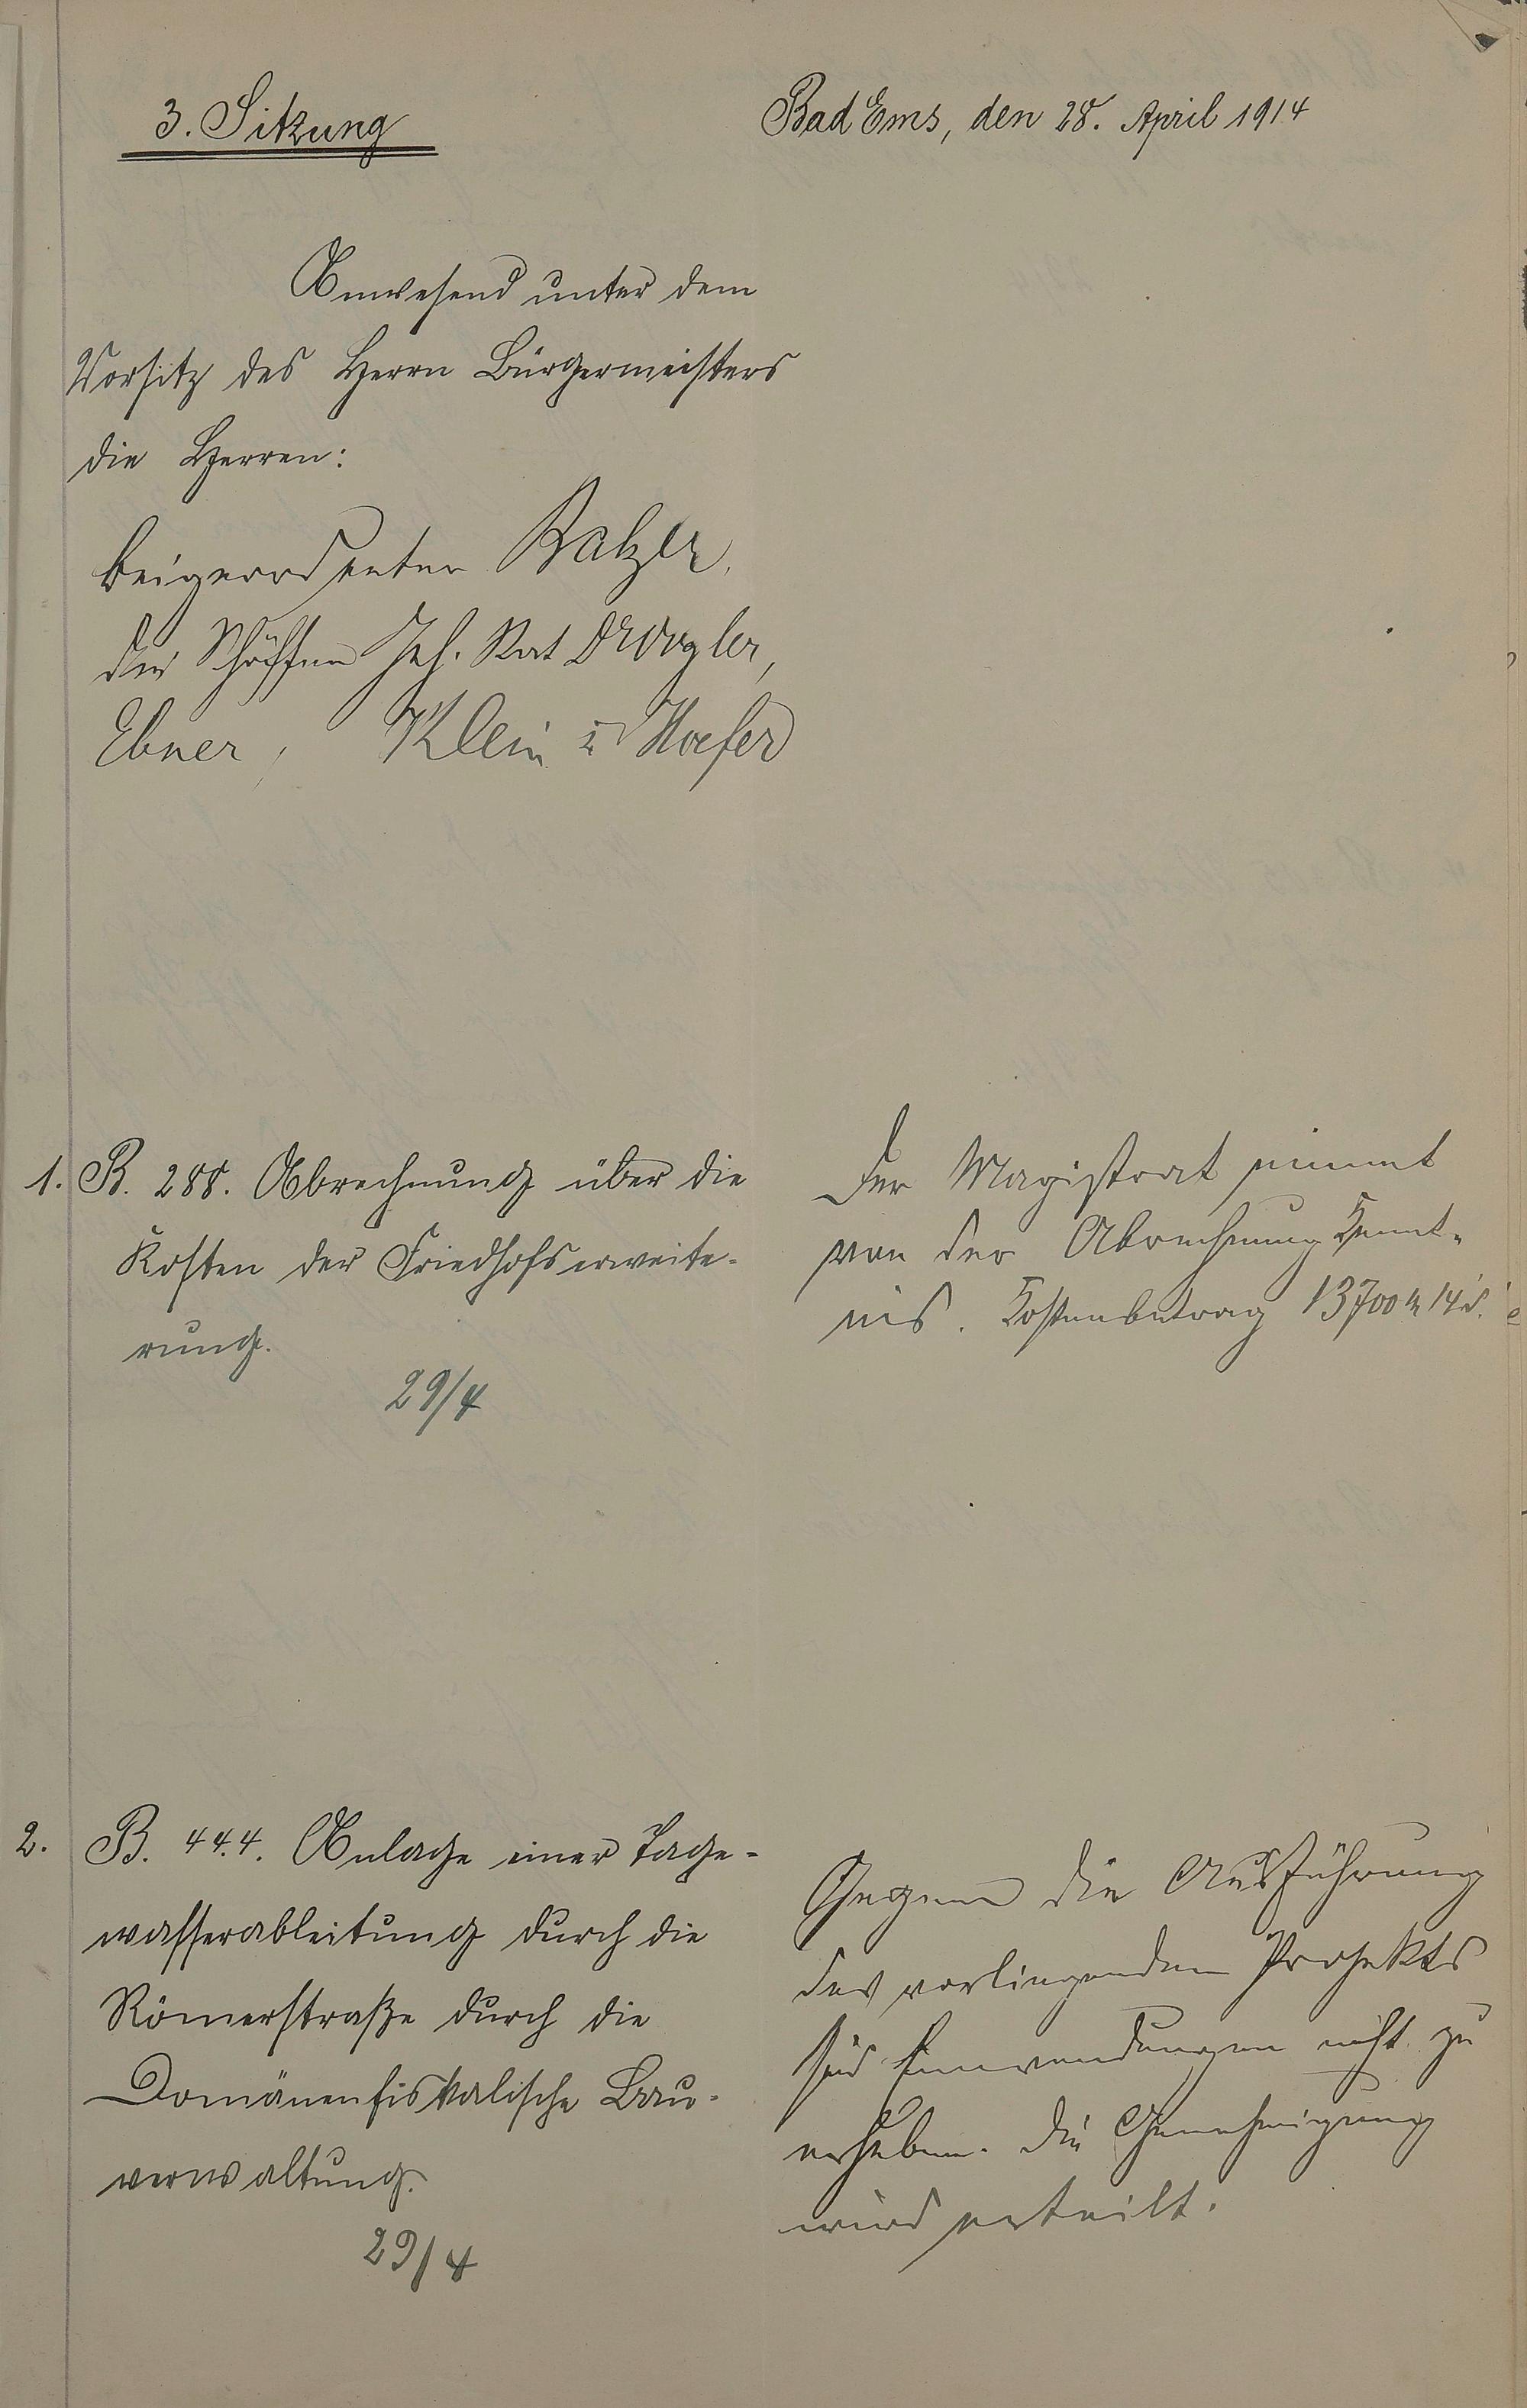 3. Sitzung
Bad Ems, den 28. April 1914
Anwesend unter dem
Vorsitz des Herrn Bürgermeisters
die Herren:
Beigeordneter Balzer,
die Schöffen Geh. Rat Dr Vogler,
Ebner, Klein u Hoefer
1. B. 288. Abrechnung über die
Kosten der Friedhofserweite-
rung.
29/4
Der Magistrat nimmt
von der Abrechnung Kennt-
nis. Kostenbetrag 13700 M 14 d.
2. B. 444. Anlage einer Tage-
wasserableitung durch die
Römerstraße durch die
Domänenfiskalische Bau-
verwaltung.
29/4
Gegen die Ausführung
des vorliegenden Projekts
sind Einwendungen nicht zu
erheben. Die Genehmigung
wird erteilt.